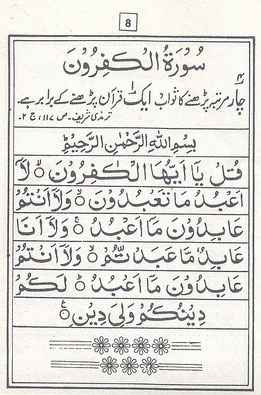 8
سُوْرَةُ الْكٰفِرُوْنَ
۴
چار مرتبہ پڑھنے کا ثواب ایک قرآن پڑھنے کے برابر ہے۔
ترمذی شریف۔ ص ۱۱۷، ج ۲۔
بِسْمِ اللهِ الرَّحْمٰنِ الرَّحِيْمِ
قُلْ يٰٓاَيُّهَا الْكٰفِرُوْنَ ۙ لَآ
اَعْبُدُ مَا تَعْبُدُوْنَ ۙ وَلَآ اَنْتُمْ
عٰبِدُوْنَ مَآ اَعْبُدُ ۚ وَلَآ اَنَا
عَابِدٌ مَّا عَبَدْتُّمْ ۙ وَلَآ اَنْتُمْ
عٰبِدُوْنَ مَآ اَعْبُدُ ؕ لَكُمْ
دِيْنُكُمْ وَلِيَ دِيْنِ ۧ